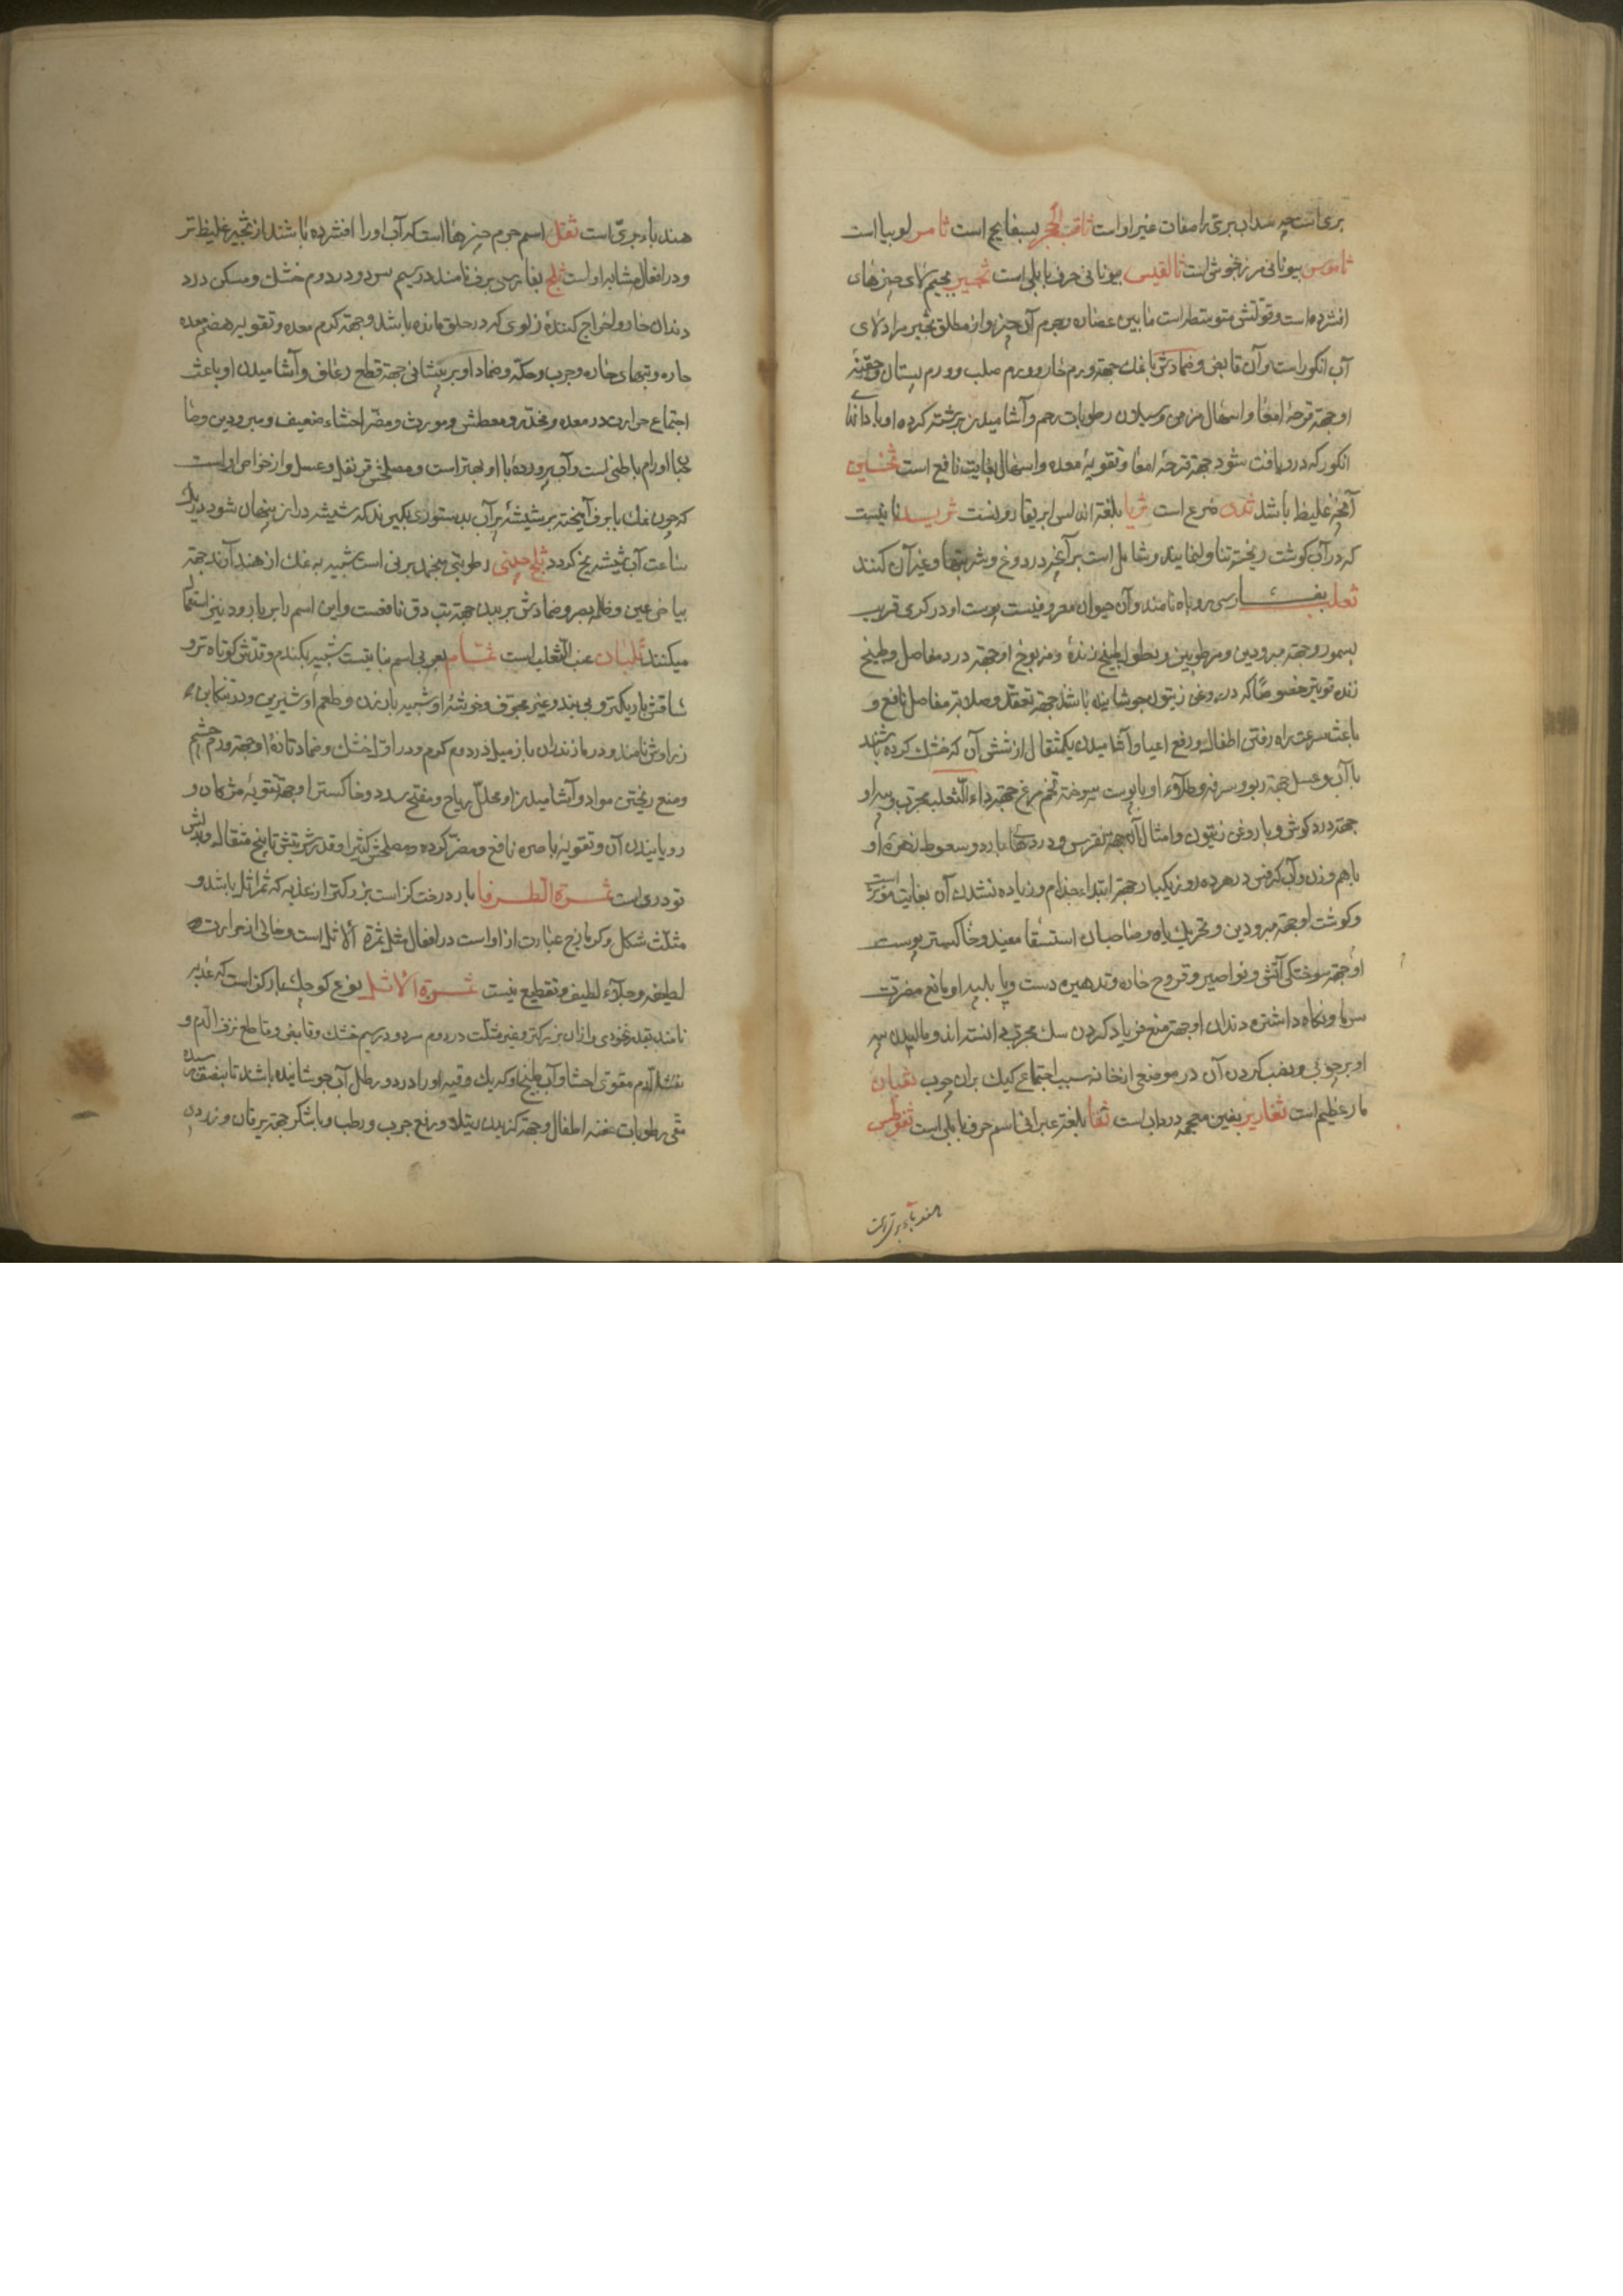 بری است چه سداب بری را صفات غیر اوست ثاقب الحجر بسفایج است ثامر لوبیا است
بیونانی مرزنجوش است ثالقیس بیونانی حرف بابلی است ثجیر بجیم ثلای چیزهای
افشرده است وقوتش متوسط است مابین عصاره وجرم آن چیز واز مطلق ثجیر مراد ثلای
آب انکور است وآن قابض وضمادش با نمک جهة ورم حار وورم صلب وورم پستان وحقنهٔ
او جهة قرحهٔ امعا واسهال مزمن وسیلان رطوبات رحم وآشامیدن برشته کرده او با دانهٔ
انکور که در او یافت شود جهة قرحهٔ امعا وتقویهٔ معده واسهال بغایت نافع است ثخین
آنچه غلیظ باشد ثدی ضرع است ثریا بلغة اندلس ابریقارون است ثرید نانیست
که در آب کوشت ریخته تناول نمایند وشامل است بر آنچه در دوغ وشربتها وغیر آن کنند
ثعلب بفارسی روباه نامند وآن حیوان معروفیست پوست او در کرمی قریب
بسمور وجهة مبرودین ومرطوبین ونطول طبیخ زندهٔ ومذبوح او جهة درد مفاصل وطبیخ
زنده قویتر خصوصًا که در روغن زیتون جوشانیده باشند جهة تعقد وصلابة مفاصل نافع و
باعث سرعت راه رفتن اطفال ورفع اعیا وآشامیدن یکمثقال از شش آن که خشک کرده باشند
با آب وعسل جهة ربو وسرفه وطلاء او با پوست سوخته تخم مرغ جهة داء الثعلب مجرب وپیه او
جهة درد کوش وبا روغن زیتون وامثال آن جهة نقرس ودردهای بارد وسعوط زهرهٔ او
باهم وزن وآب کرفس در هر ده روز یکبار جهة ابتداء جذام وزیاده نشدن آن بغایت مؤثر است
وکوشت او جهة مبرودین وتحریک باه وصاحبان استسقا مفید وخاکستر پوست
او جهة سوختکی آتش ونواصیر وقروح حاره وتدهین دست وپا با پیه او مانع مضرت
سرما ونکاه داشتن دندان او جهة منع فریاد کردن سک مجرب دانسته اند ومالیدن پیه
او بر چوبی ونصب کردن آن در موضعی از خانه سبب اجتماع کیک بران چوب ثعبان
مار عظیم است ثغاریر بغین معجمه است ثفا بلغة عبرانی اسم حرف بابلی است
هندباء بری است
هندباء بری است ثفل اسم جرم چیزها است که آب او را افشرده باشند از ثجیر غلیظ تر
ودر افعال مشابه اوست ثلج بفارسی برف نامند در سیم سرد ودر دوم خشک ومسکن درد
دندان حار واخراج کنندهٔ زلوی که در حلق مانده باشد وجهة کرم معده وتقویه هضم معده
حاره وتبهای حاره وجرب وحکه وضماد او بر پیشانی جهة قطع رعاف وآشامیدن او باعث
اجتماع حرارت در معده ومخدر ومعطش ومورث ومضر احشاء ضعیف ومبرودین وصا
حبا اورام باطنی است وآب پرورده با او بهتر است ومصلحش قرنفل وعسل واز خواص او است
که چون نمک با برف آمیخته بر شیشهٔ پر آب بدستوری بکیرند که شیشه در آن پنهان شود در یک
ساعت آب شیشه یخ کردد ثلج چینی رطوبتی منجمد برنی است شبیه به نمک از هند آرند جهة
بیاض عین وظلمه بصر وضمادش بر بدن جهة تب دق نافعست واین اسم را بر بارود نیز استعما
میکنند ثلثان عنب الثعلب است ثمام بعربی اسم نباتیست شبیه بکندم وقدش کوتاه تر و
ساقش باریکتر وبی بند وغیر مجوف وخوشهٔ او شبیه بارزن وطعم او شیرین ودر تنکابن
نامند ودر مازندران در دوم کرم ودر اول خشک وضماد تازهٔ او جهة ورم چشم
ومنع ریختن مواد وآشامیدن او محلل ریاح ومفتح سدد وخاکستر او جهة تقویهٔ مژکان و
رویانیدن آن وتقویهٔ باصره نافع ومضر کرده ومصلحش کثیرا وقدر شربتش تا پنج مثقال وبدلش
تودری است ثمرة الطرفا بار درخت کز است بزرکتر از عذبه که ثمر اثل باشد و
مثلث شکل وکزمازج عبارت از اوست در افعال مثل ثمرة الاثل است وخالی از حرارت
لطیفه وجلاء لطیف وتقطیع نیست ثمرة الاثل نوع کوچک بار کز است که عذبه
نامند بقدر نخودی واز آن بزرکتر وغیر مثلث در دوم سرد ودر سیم خشک وقابض وقاطع نزف الدم و
نفث الدم مقوی احشا وآب طبیخ او که یک وقیه او را در دو رطل آب جوشانیده باشند تا بنصف رسیده
منقی رطوبات عفنه اطفال وجهة کزیدن رتیلا ورفع جرب ورطب وبا شکر جهة یرقان وزردی